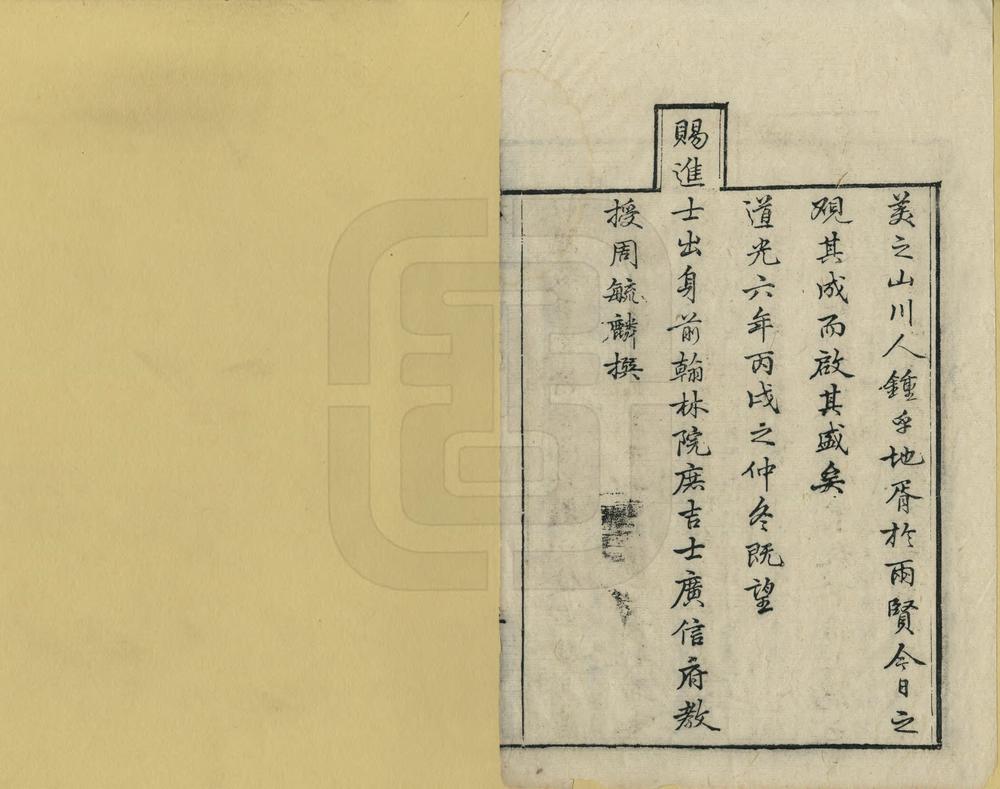 美之山川人鍾乎地胥於兩賢今日之
觀其成而啟其盛矣
道光六年丙戌之仲冬既望
賜進士出身前翰林院庶吉士廣信府教
授周毓麟撰